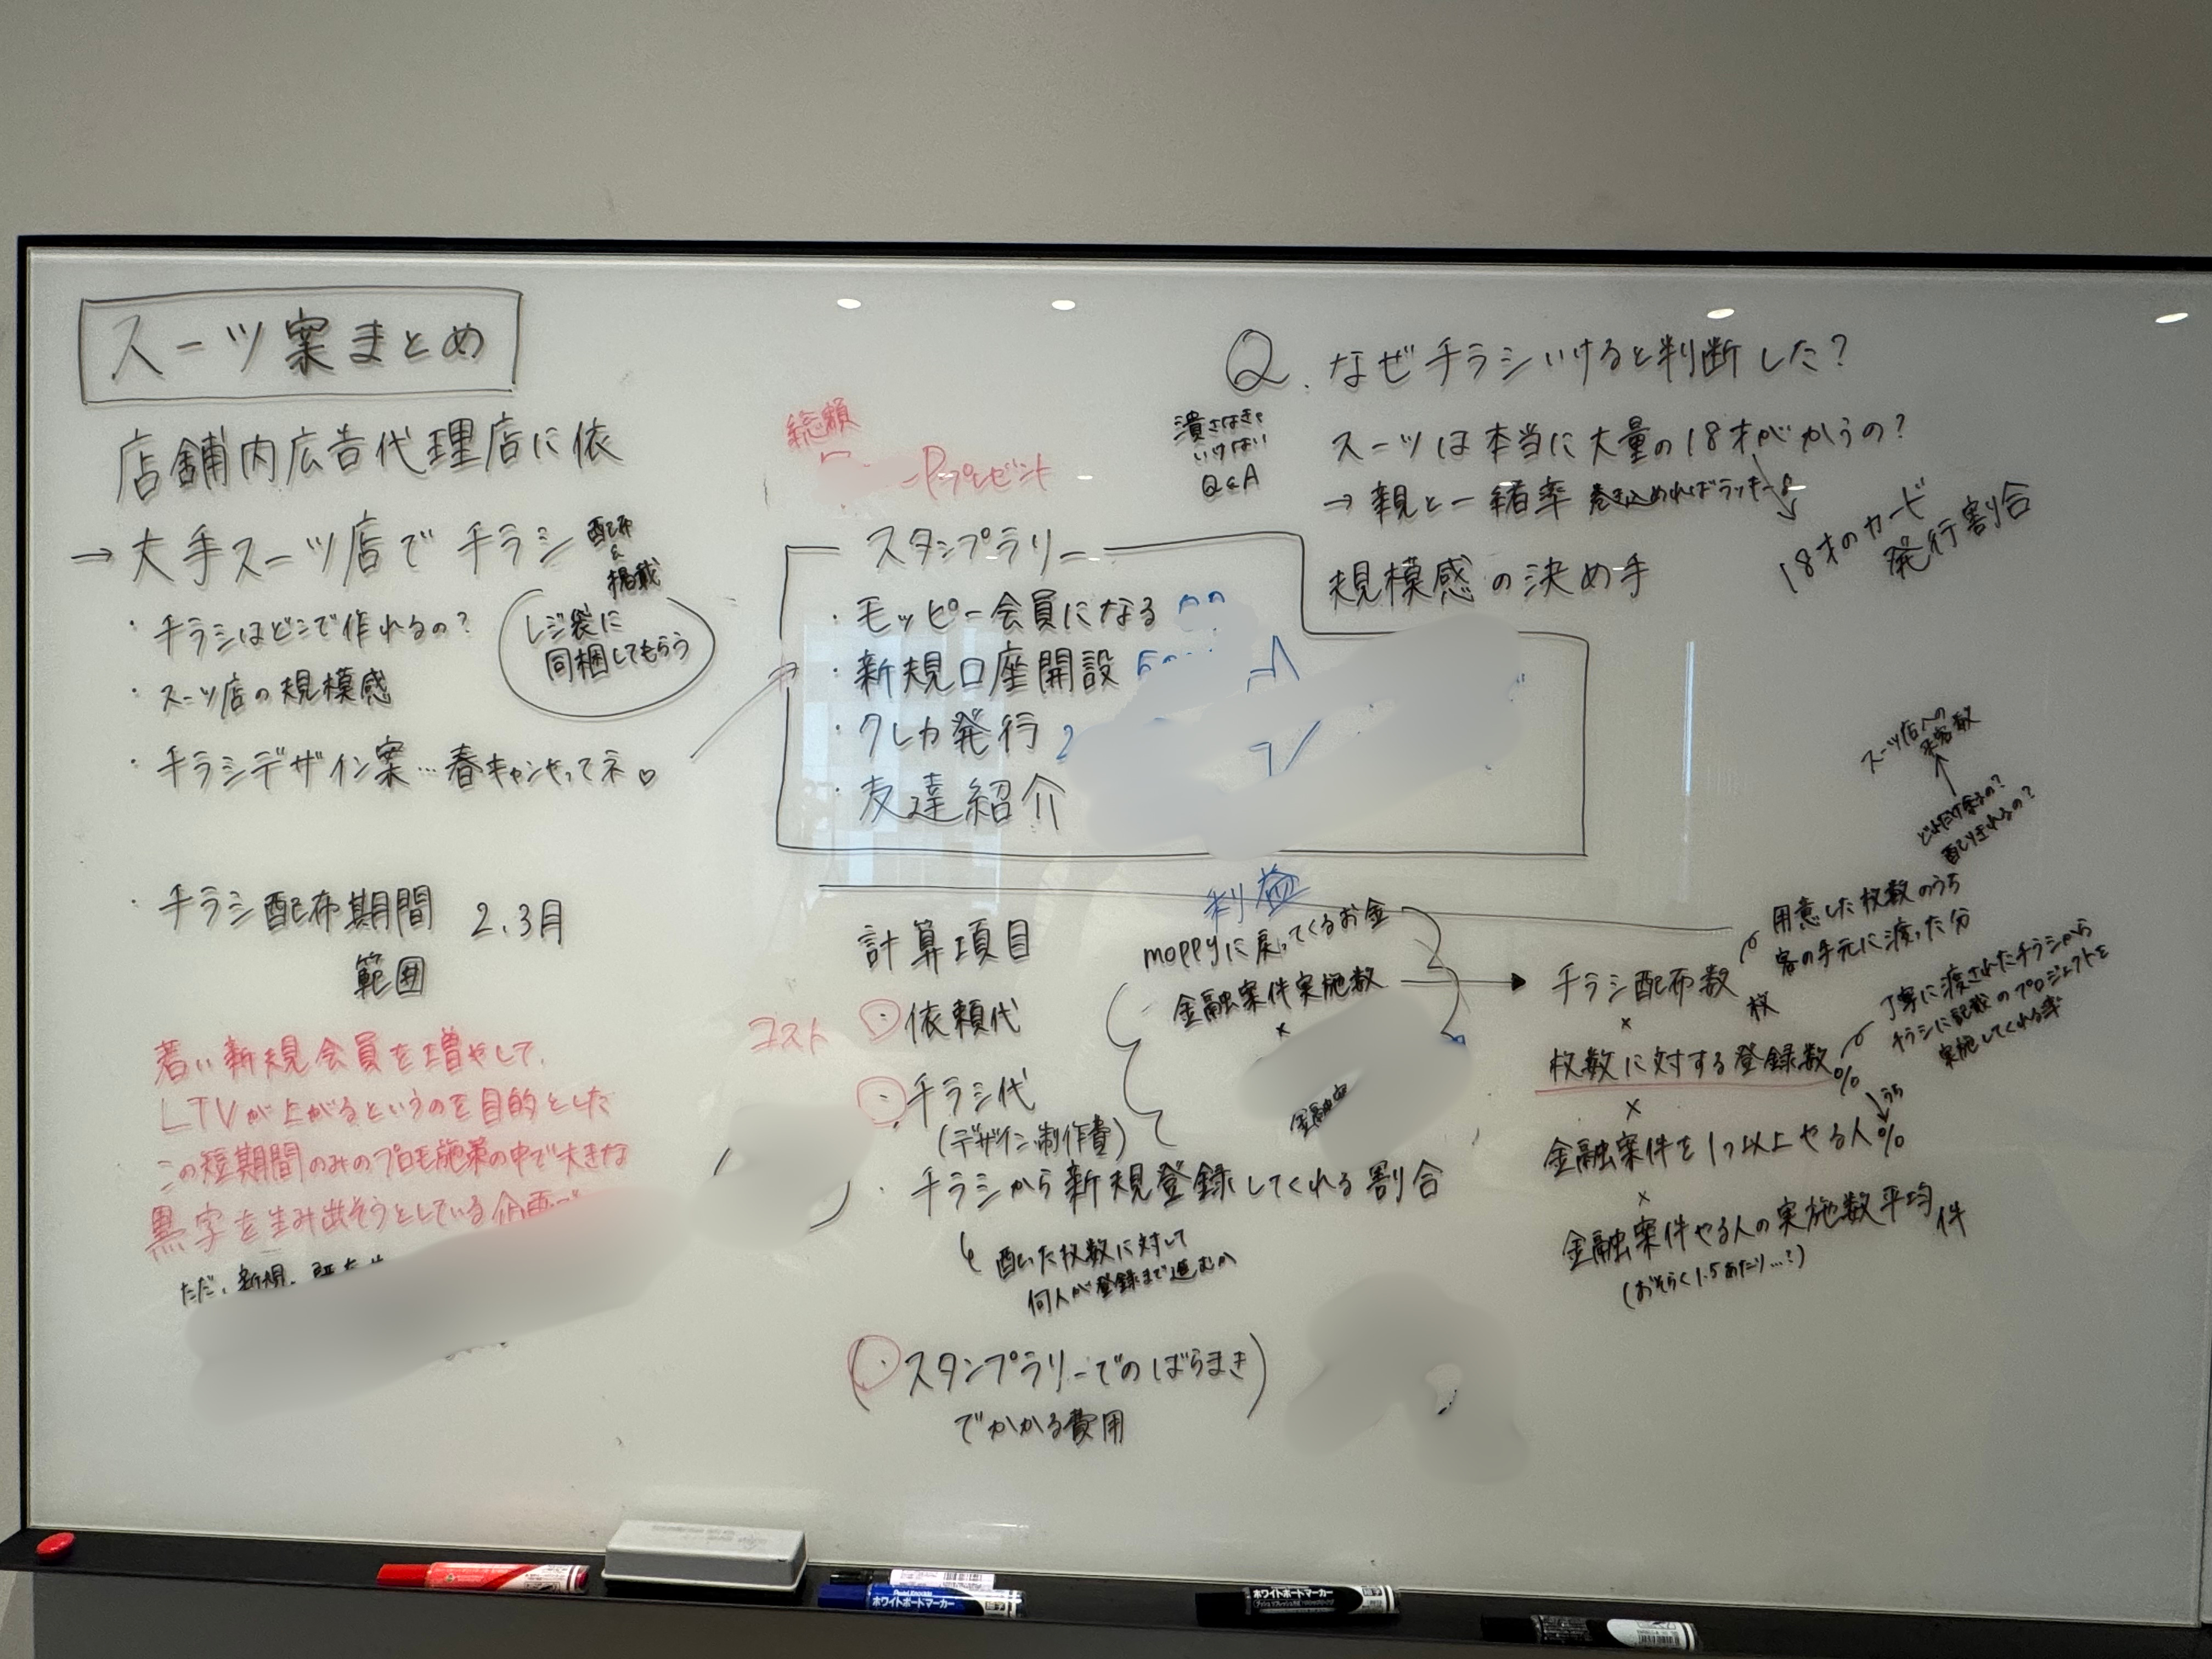 スーツ案まとめ
店舗内広告代理店に依
→ 大手スーツ店で チラシ 配布 & 掲載
・チラシはどこで作れるの?
・スーツ店の規模感
レジ袋に
同梱してもらう
・チラシデザイン案…春キャンやってネ♡
・チラシ配布期間 2、3月
範囲
若い新規会員を増やして、
LTVが上がるというのを目的とした
この短期間のみのプロモ施策の中で大きな
黒字を生み出そうとしている企画
ただ、新規、
総額
Pプレゼント
スタンプラリー
・モッピー会員になる
・新規口座開設
・クレカ発行
・友達紹介
Q. なぜチラシいけると判断した?
Q&A
スーツは本当に大量の18才がかうの?
→ 親と一緒率 巻き込めればラッキー
18才のカード
発行割合
規模感の決め手
計算項目
コスト
・依頼代
・チラシ代
(デザイン、制作費)
・チラシから新規登録してくれる割合
配った枚数に対して
何人が登録まで進むか
(・スタンプラリーでのばらまき)
でかかる費用
利益
moppyに戻ってくるお金
金融案件実施数
×
スーツ店への
来客数
どれだけ余るの?
配りきれるの?
用意した枚数のうち
客の手元に渡った分
チラシ配布数 枚
×
丁寧に渡されたチラシから
チラシに記載のプロジェクトを
実施してくれる率
枚数に対する登録数 %
×
うち
金融案件を1つ以上やる人 %
×
金融案件やる人の実施数平均 件
(おそらく1.5あたり…?)
ホワイトボードマーカー
ホワイトボードマーカー